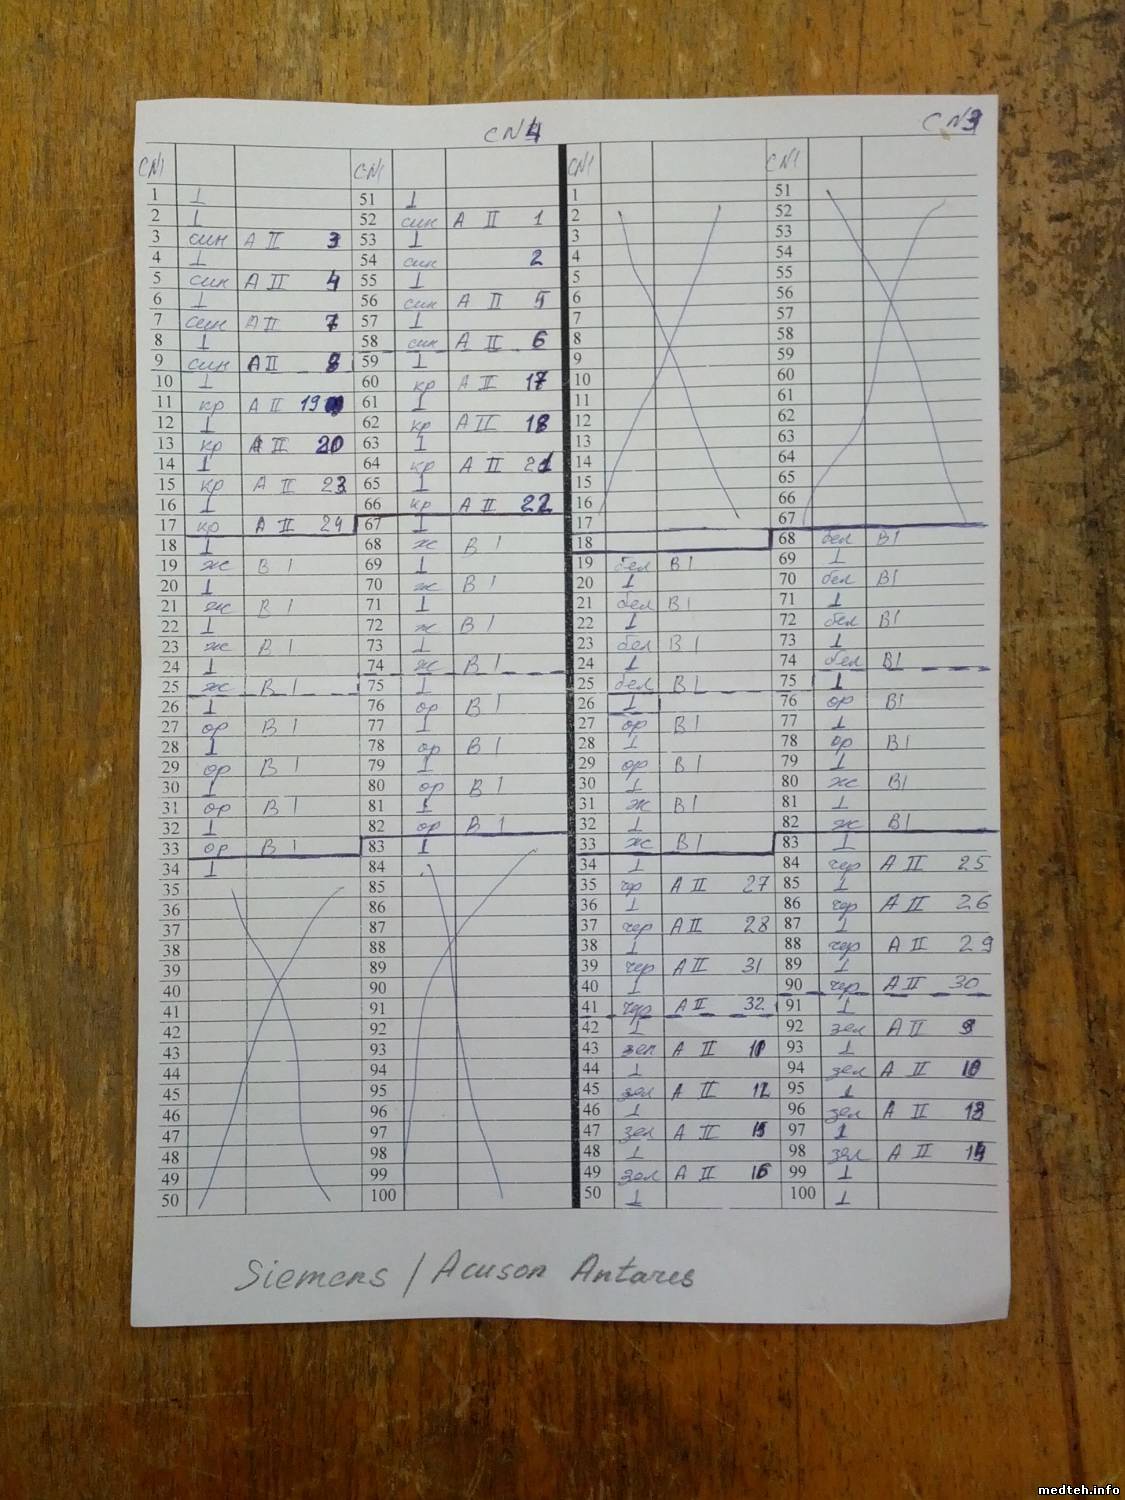 CN4 CN3
CN1 CN1 CN1 CN1
1 ⊥ 51 ⊥ 1 51
2 ⊥ 52 син A II 1 2 52
3 син A II 3 53 ⊥ 3 53
4 ⊥ 54 син 2 4 54
5 син A II 4 55 ⊥ 5 55
6 ⊥ 56 син A II 5 6 56
7 син A II 7 57 ⊥ 7 57
8 ⊥ 58 син A II 6 8 58
9 син A II 8 59 ⊥ 9 59
10 ⊥ 60 кр A II 17 10 60
11 кр A II 19 61 ⊥ 11 61
12 ⊥ 62 кр A II 18 12 62
13 кр A II 20 63 ⊥ 13 63
14 ⊥ 64 кр A II 21 14 64
15 кр A II 23 65 ⊥ 15 65
16 ⊥ 66 кр A II 22 16 66
17 кр A II 24 67 ⊥ 17 67
18 ⊥ 68 ж B I 18 68 бел B I
19 ж B I 69 ⊥ 19 бел B I 69 ⊥
20 ⊥ 70 ж B I 20 ⊥ 70 бел B I
21 ж B I 71 ⊥ 21 бел B I 71 ⊥
22 ⊥ 72 ж B I 22 ⊥ 72 бел B I
23 ж B I 73 ⊥ 23 бел B I 73 ⊥
24 ⊥ 74 ж B I 24 ⊥ 74 бел B I
25 ж B I 75 ⊥ 25 бел B I 75 ⊥
26 ⊥ 76 ор B I 26 ⊥ 76 ор B I
27 ор B I 77 ⊥ 27 ор B I 77 ⊥
28 ⊥ 78 ор B I 28 ⊥ 78 ор B I
29 ор B I 79 ⊥ 29 ор B I 79 ⊥
30 ⊥ 80 ор B I 30 ⊥ 80 ж B I
31 ор B I 81 ⊥ 31 ж B I 81 ⊥
32 ⊥ 82 ор B I 32 ⊥ 82 ж B I
33 ор B I 83 ⊥ 33 ж B I 83 ⊥
34 ⊥ 84 34 ⊥ 84 чер A II 25
35 85 35 чр A II 27 85 ⊥
36 86 36 ⊥ 86 чер A II 26
37 87 37 чер A II 28 87 ⊥
38 88 38 ⊥ 88 чер A II 29
39 89 39 чер A II 31 89 ⊥
40 90 40 ⊥ 90 чер A II 30
41 91 41 чер A II 32 91 ⊥
42 92 42 ⊥ 92 зел A II 9
43 93 43 зел A II 93 ⊥
44 94 44 ⊥ 94 зел A II 10
45 95 45 зел A II 12 95 ⊥
46 96 46 ⊥ 96 зел A II 13
47 97 47 зел A II 15 97 ⊥
48 98 48 ⊥ 98 зел A II 14
49 99 49 зел A II 16 99 ⊥
50 100 50 ⊥ 100 ⊥
Siemens / Acuson Antares
medteh.info